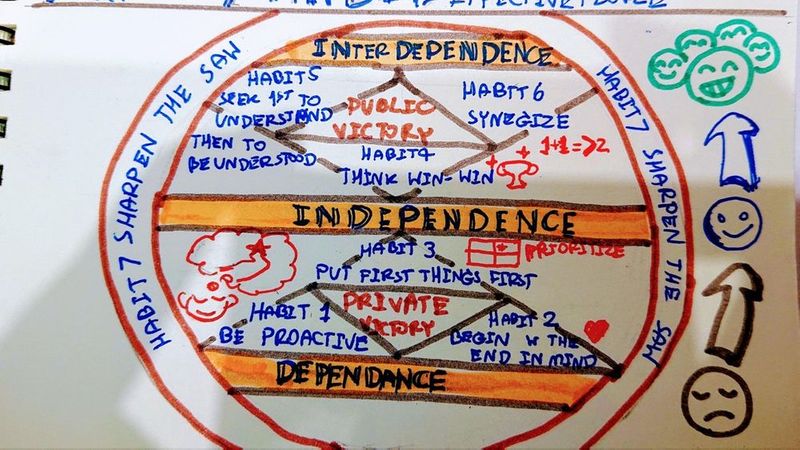 INTERDEPENDENCE
HABIT 5
SEEK 1ST TO
UNDERSTAND
THEN TO
BE UNDERSTOOD
PUBLIC
VICTORY
HABIT 6
SYNEGIZE
1+1=>2
HABIT 4
THINK WIN-WIN
INDEPENDENCE
HABIT 3
PUT FIRST THINGS FIRST
PRIORITIZE
HABIT 1
BE PROACTIVE
PRIVATE
VICTORY
HABIT 2
BEGIN W THE
END IN MIND
DEPENDANCE
HABIT 7 SHARPEN THE SAW
HABIT 7 SHARPEN THE SAW